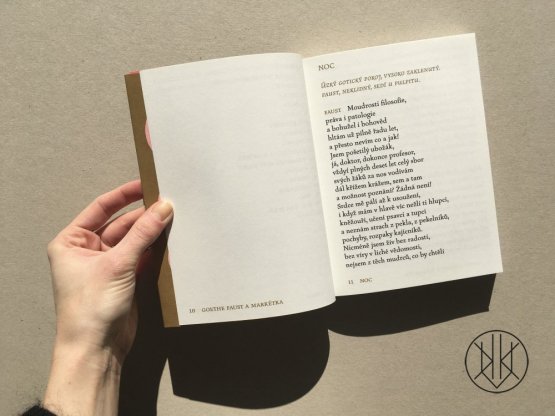 10 GOETHE FAUST A MARKÉTKA
NOC
ÚZKÝ GOTICKÝ POKOJ, VYSOKO ZAKLENUTÝ.
FAUST, NEKLIDNÝ, SEDÍ U PULPITU.
FAUST Moudrostí filosofie,
práva i patologie
a bohužel i bohověd
hltám už pilně řadu let,
a přesto nevím co a jak!
Jsem pošetilý ubožák,
já, doktor, dokonce profesor,
vždyť plných deset let celý sbor
svých žáků za nos vodívám
dál křížem krážem, sem a tam
a možnost poznání? Žádná není!
Srdce mě pálí až k usoužení,
i když mám v hlavě víc nežli ti hlupci,
kněžouři, učení psavci a tupci
a neznám strach z pekla, z pekelníků,
pochyby, rozpaky kajícníků.
Nicméně jsem živ bez radosti,
bez víry v liché vědomosti,
nejsem z těch mudrců, co by chtěli
11 NOC